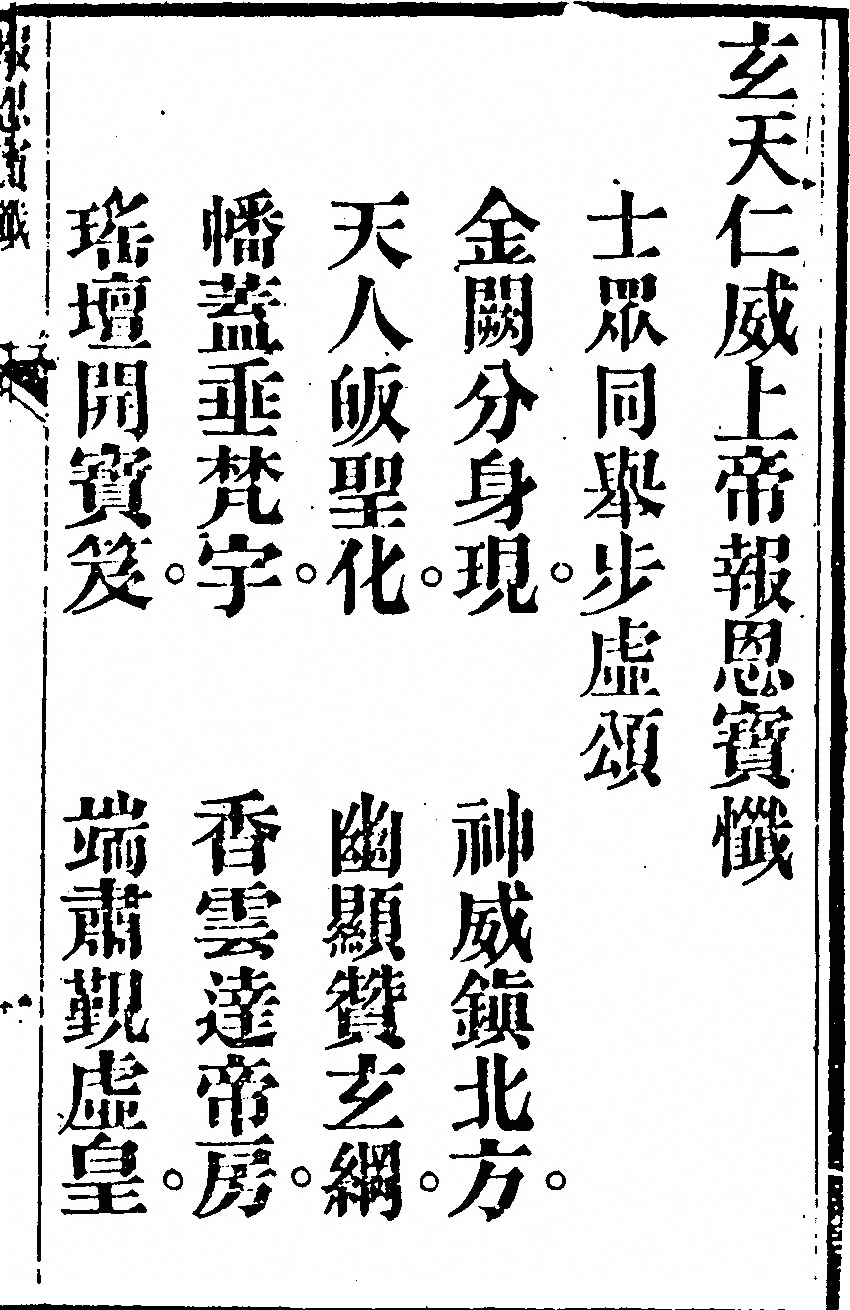 玄天仁威上帝報恩寶懺
士眾同舉步虛頌
金闕分身現。神威鎭北方。
天人皈聖化。幽顯贊玄綱。
幡蓋垂梵字。香雲達帝房。
瑤壇開寶笈。端肅覲虛皇。
報恩寶懺